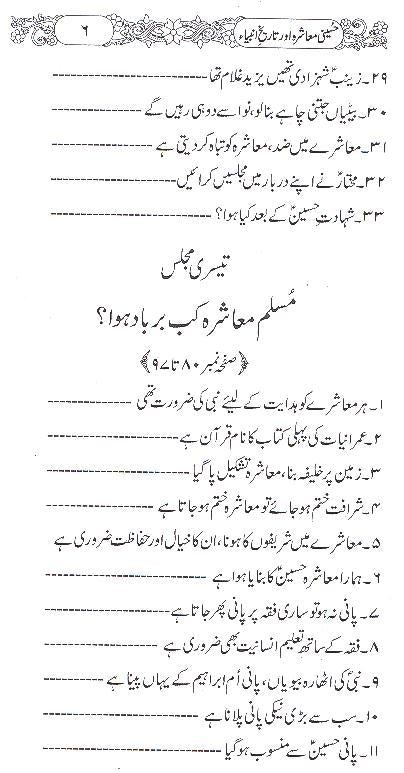 حسینی معاشرہ اور تاریخِ انبیاء ۶
۲۹۔ زینبؑ شہزادی تھیں یزید غلام تھا
۳۰۔ بیٹیاں جتنی چاہے بنا لو، نواسے دو ہی رہیں گے
۳۱۔ معاشرے میں ضد، معاشرہ کو تباہ کر دیتی ہے
۳۲۔ مختارؒ نے اپنے دربار میں مجلسیں کرائیں
۳۳۔ شہادتِ حسینؑ کے بعد کیا ہوا؟
تیسری مجلس
مُسلم معاشرہ کب برباد ہوا؟
﴿صفحہ نمبر ۸۰ تا ۹۷﴾
۱۔ ہر معاشرے کو ہدایت کے لیئے نبی کی ضرورت تھی
۲۔ عمرانیات کی پہلی کتاب کا نام قرآن ہے
۳۔ زمین پر خلیفہ بنا، معاشرہ تشکیل پا گیا
۴۔ شرافت ختم ہو جائے تو معاشرہ ختم ہو جاتا ہے
۵۔ معاشرے میں شریفوں کا ہونا، ان کا خیال اور حفاظت ضروری ہے
۶۔ ہمارا معاشرہ حسینؑ کا بنایا ہوا ہے
۷۔ پانی نہ ہو تو ساری فقہ پر پانی پھر جاتا ہے
۸۔ فقہ کے ساتھ تعلیم انسانیت بھی ضروری ہے
۹۔ نبیؐ کی اٹھارہ بیویاں، پانی اُم ابراہیم کے یہاں پینا ہے
۱۰۔ سب سے بڑی نیکی پانی پلانا ہے
۱۱۔ پانی حسینؑ سے منسوب ہو گیا